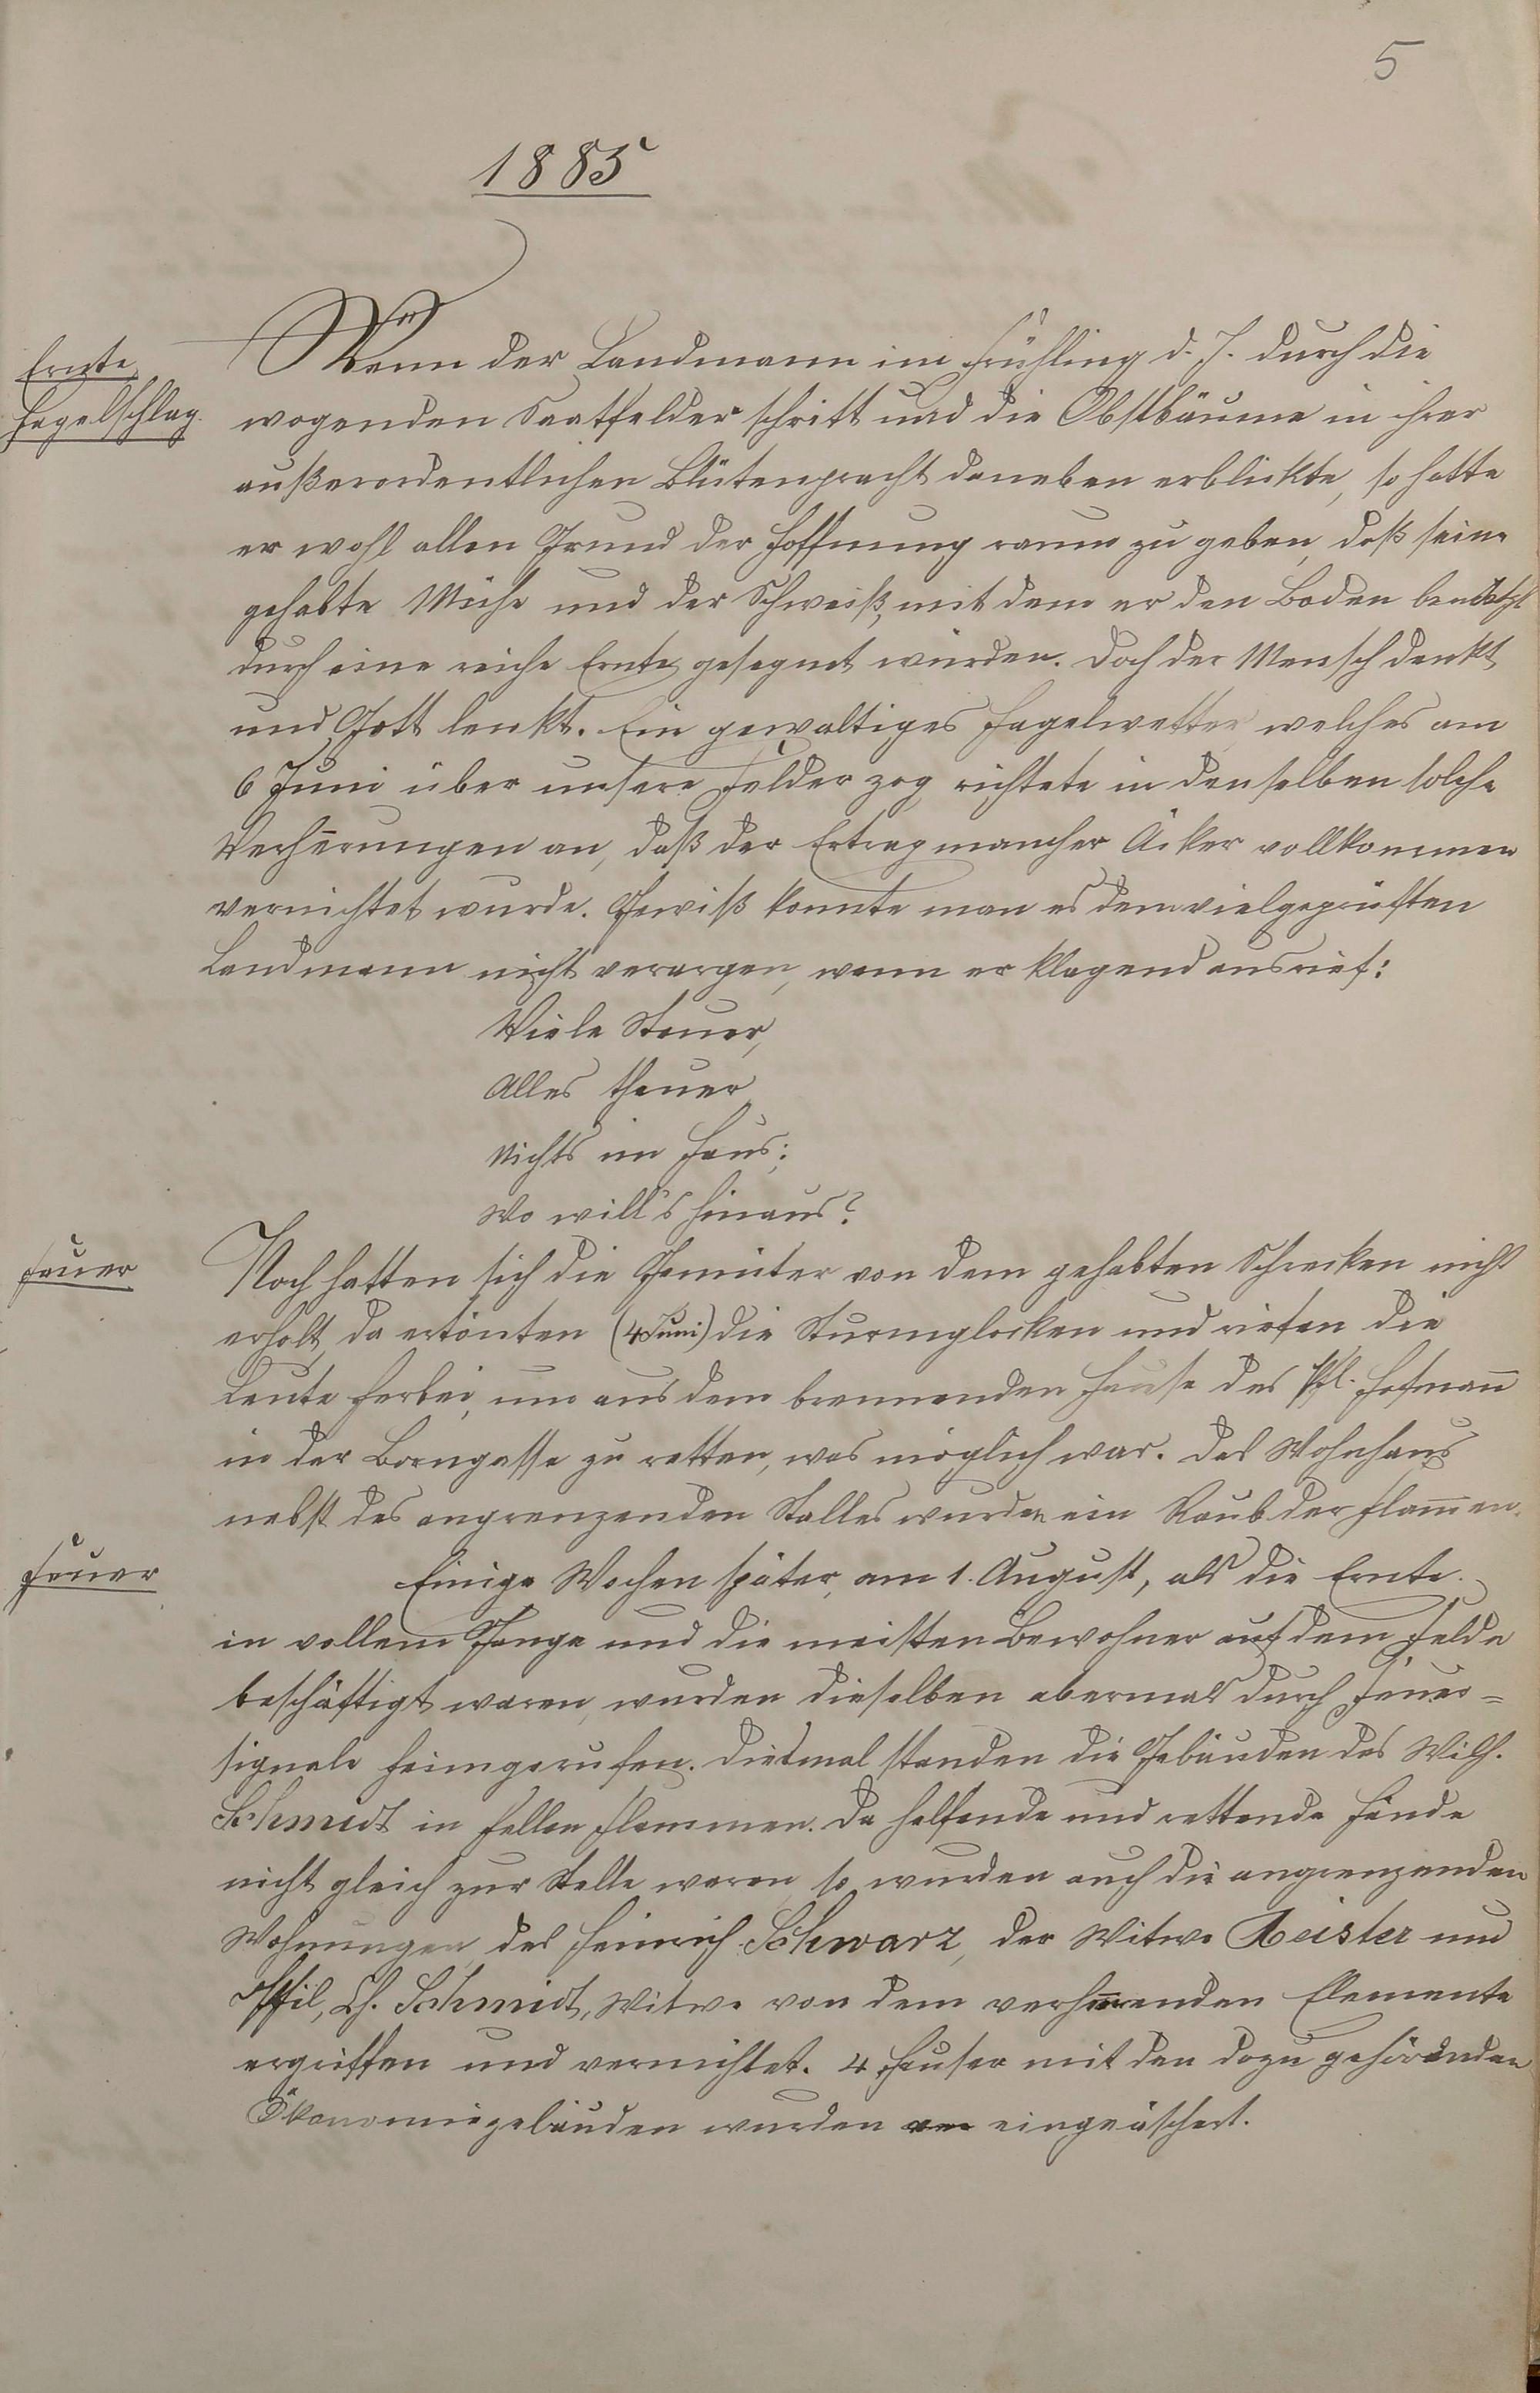 5
1885
Ernte,
Hagelschlag.
Wenn der Landmann im Frühling d. J. durch die
wogenden Saatfelder schritt und die Obstbäume in ihrer
außerordentlichen Blütenpracht daneben erblickte, so hatte
er wohl allen Grund der Hoffnung raum zu geben, daß seine
gehabte Mühe und der Schweiß, mit dem er den Boden benetzt
durch eine reiche Ernte gesegnet würden. Doch der Mensch denkt
und Gott lenkt. Ein gewaltiges Hagelwetter, welches am
6 Juni über unsere Felder zog, richtete in denselben solche
Verherungen an, daß der Ertrag mancher Äcker vollkommen
vernichtet wurde. Gewiß konnte man es dem vielgeprüften
Landmann nicht verargen, wenn er klagend ausrief:
Viele Steuer,
Alles theuer
Nichts im Haus;
Wo will's hinaus?
Feuer
Noch hatten sich die Gemüter von dem gehabten Schrecken nicht
erholt, da ertönten (4 Juni) die Sturmglocken und riefen die
Leute herbei, um aus dem brennenden Hause des Phl. Hofman̄
in der Borngasse zu retten, was möglich war. Das Wohnhaus
nebst des angrenzenden Stalles wurden ein Raub der Flam̄en.
Feuer
Einige Wochen später, am 1. August, als die Ernte
in vollem Gange und die meisten Bewohner auf dem Felde
beschäftigt waren, wurden dieselben abermals durch Feuer-
signale heimgerufen. Diesmal standen die Gebäuden des Wilh.
Schmidt in hellen Flammen. Da helfende und rettende Hände
nicht gleich zur Stelle waren, so wurden auch die angrenzenden
Wohnungen des Heinrich Schwarz, der Witwe Reister und
Phil, Ch. Schmidt, Witwe von dem verherenden Elemente
ergriffen und vernichtet. 4 Häuser mit den dazu gehörenden
Ökonomiegebäuden wurden eingeäschert.